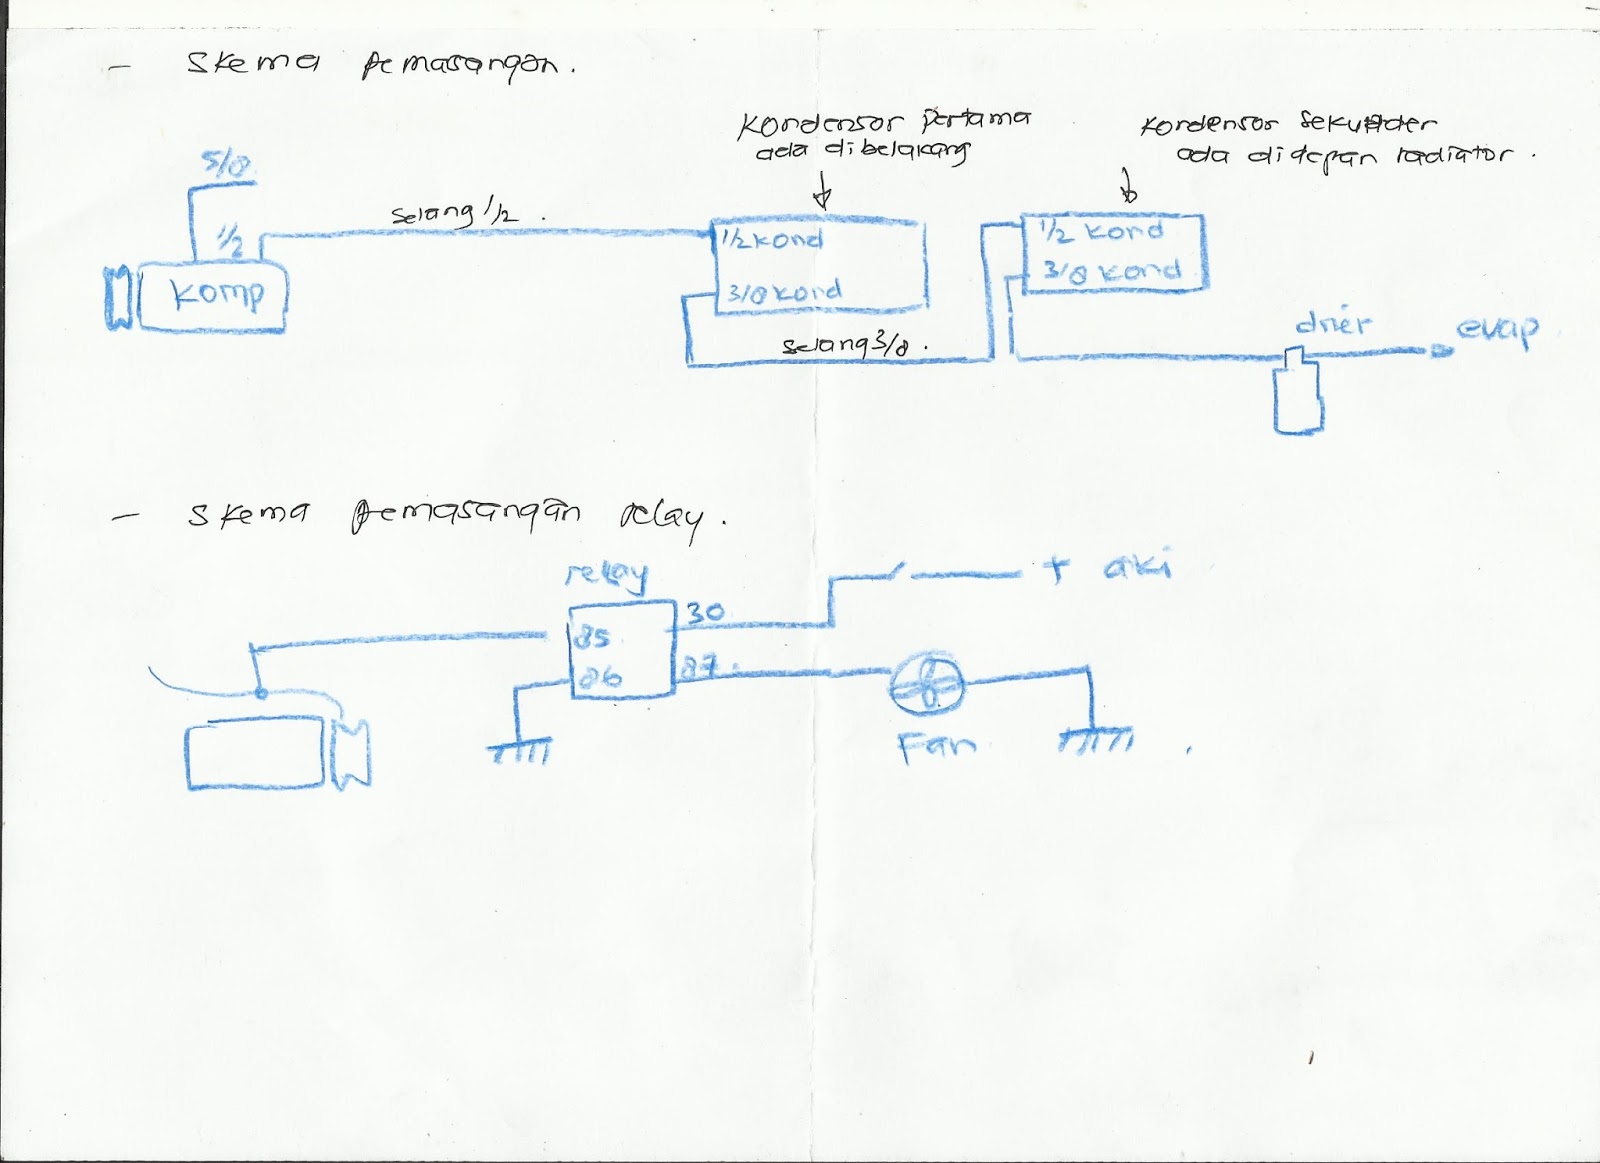 - Skema pemasangan.
Kondensor pertama
ada dibelakang
Kondensor sekunder
ada didepan radiator.
5/8
selang 1/2 .
1/2
1/2 kond
3/8 kond
1/2 kond
3/8 kond
komp
selang 3/8 .
drier
evap
- Skema pemasangan relay.
relay
+ aki
30
85
86
87
Fan